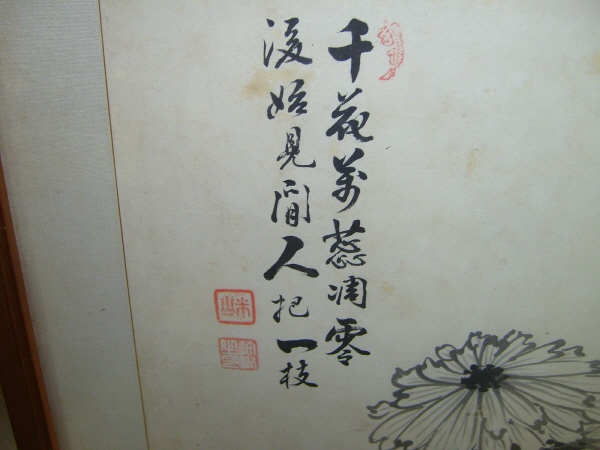 千花萬蕊凋零
後始見閒人把一枝
米山